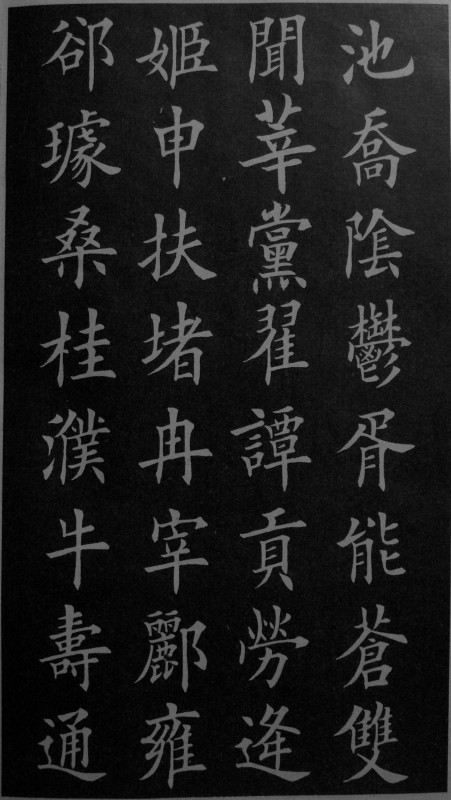 池喬陰鬱胥能蒼雙
聞莘黨翟譚貢勞逄
姬申扶堵冉宰酈雍
郤璩桑桂濮牛壽通